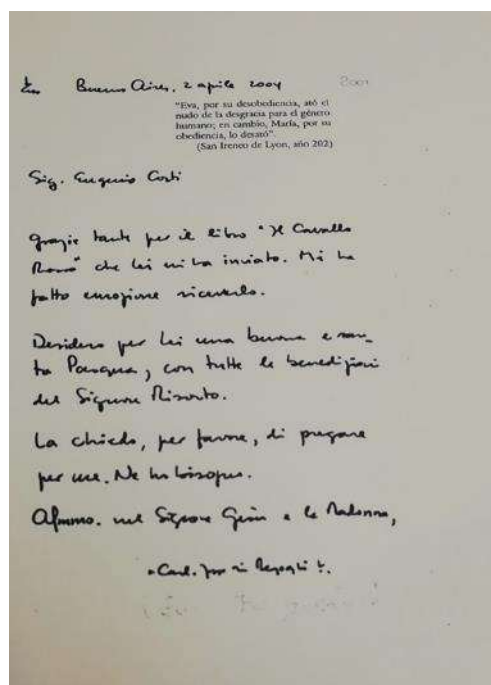 Buenos Aires, 2 aprile 2004
2004
"Eva, por su desobediencia, ató el
nudo de la desgracia para el género
humano; en cambio, María, por su
obediencia, lo desató".
(San Ireneo de Lyon, año 202)
Sig. Eugenio Corti
Grazie tante per il libro "Il Cavallo
Rosso" che Lei mi ha inviato. Mi ha
fatto emozione riceverlo.
Desidero per Lei una buona e san-
ta Pasqua, con tutte le benedizioni
del Signore Risorto.
La chiedo, per favore, di pregare
per me. Ne ho bisogno.
Affmmo. nel Signore Gesù e la Madonna,